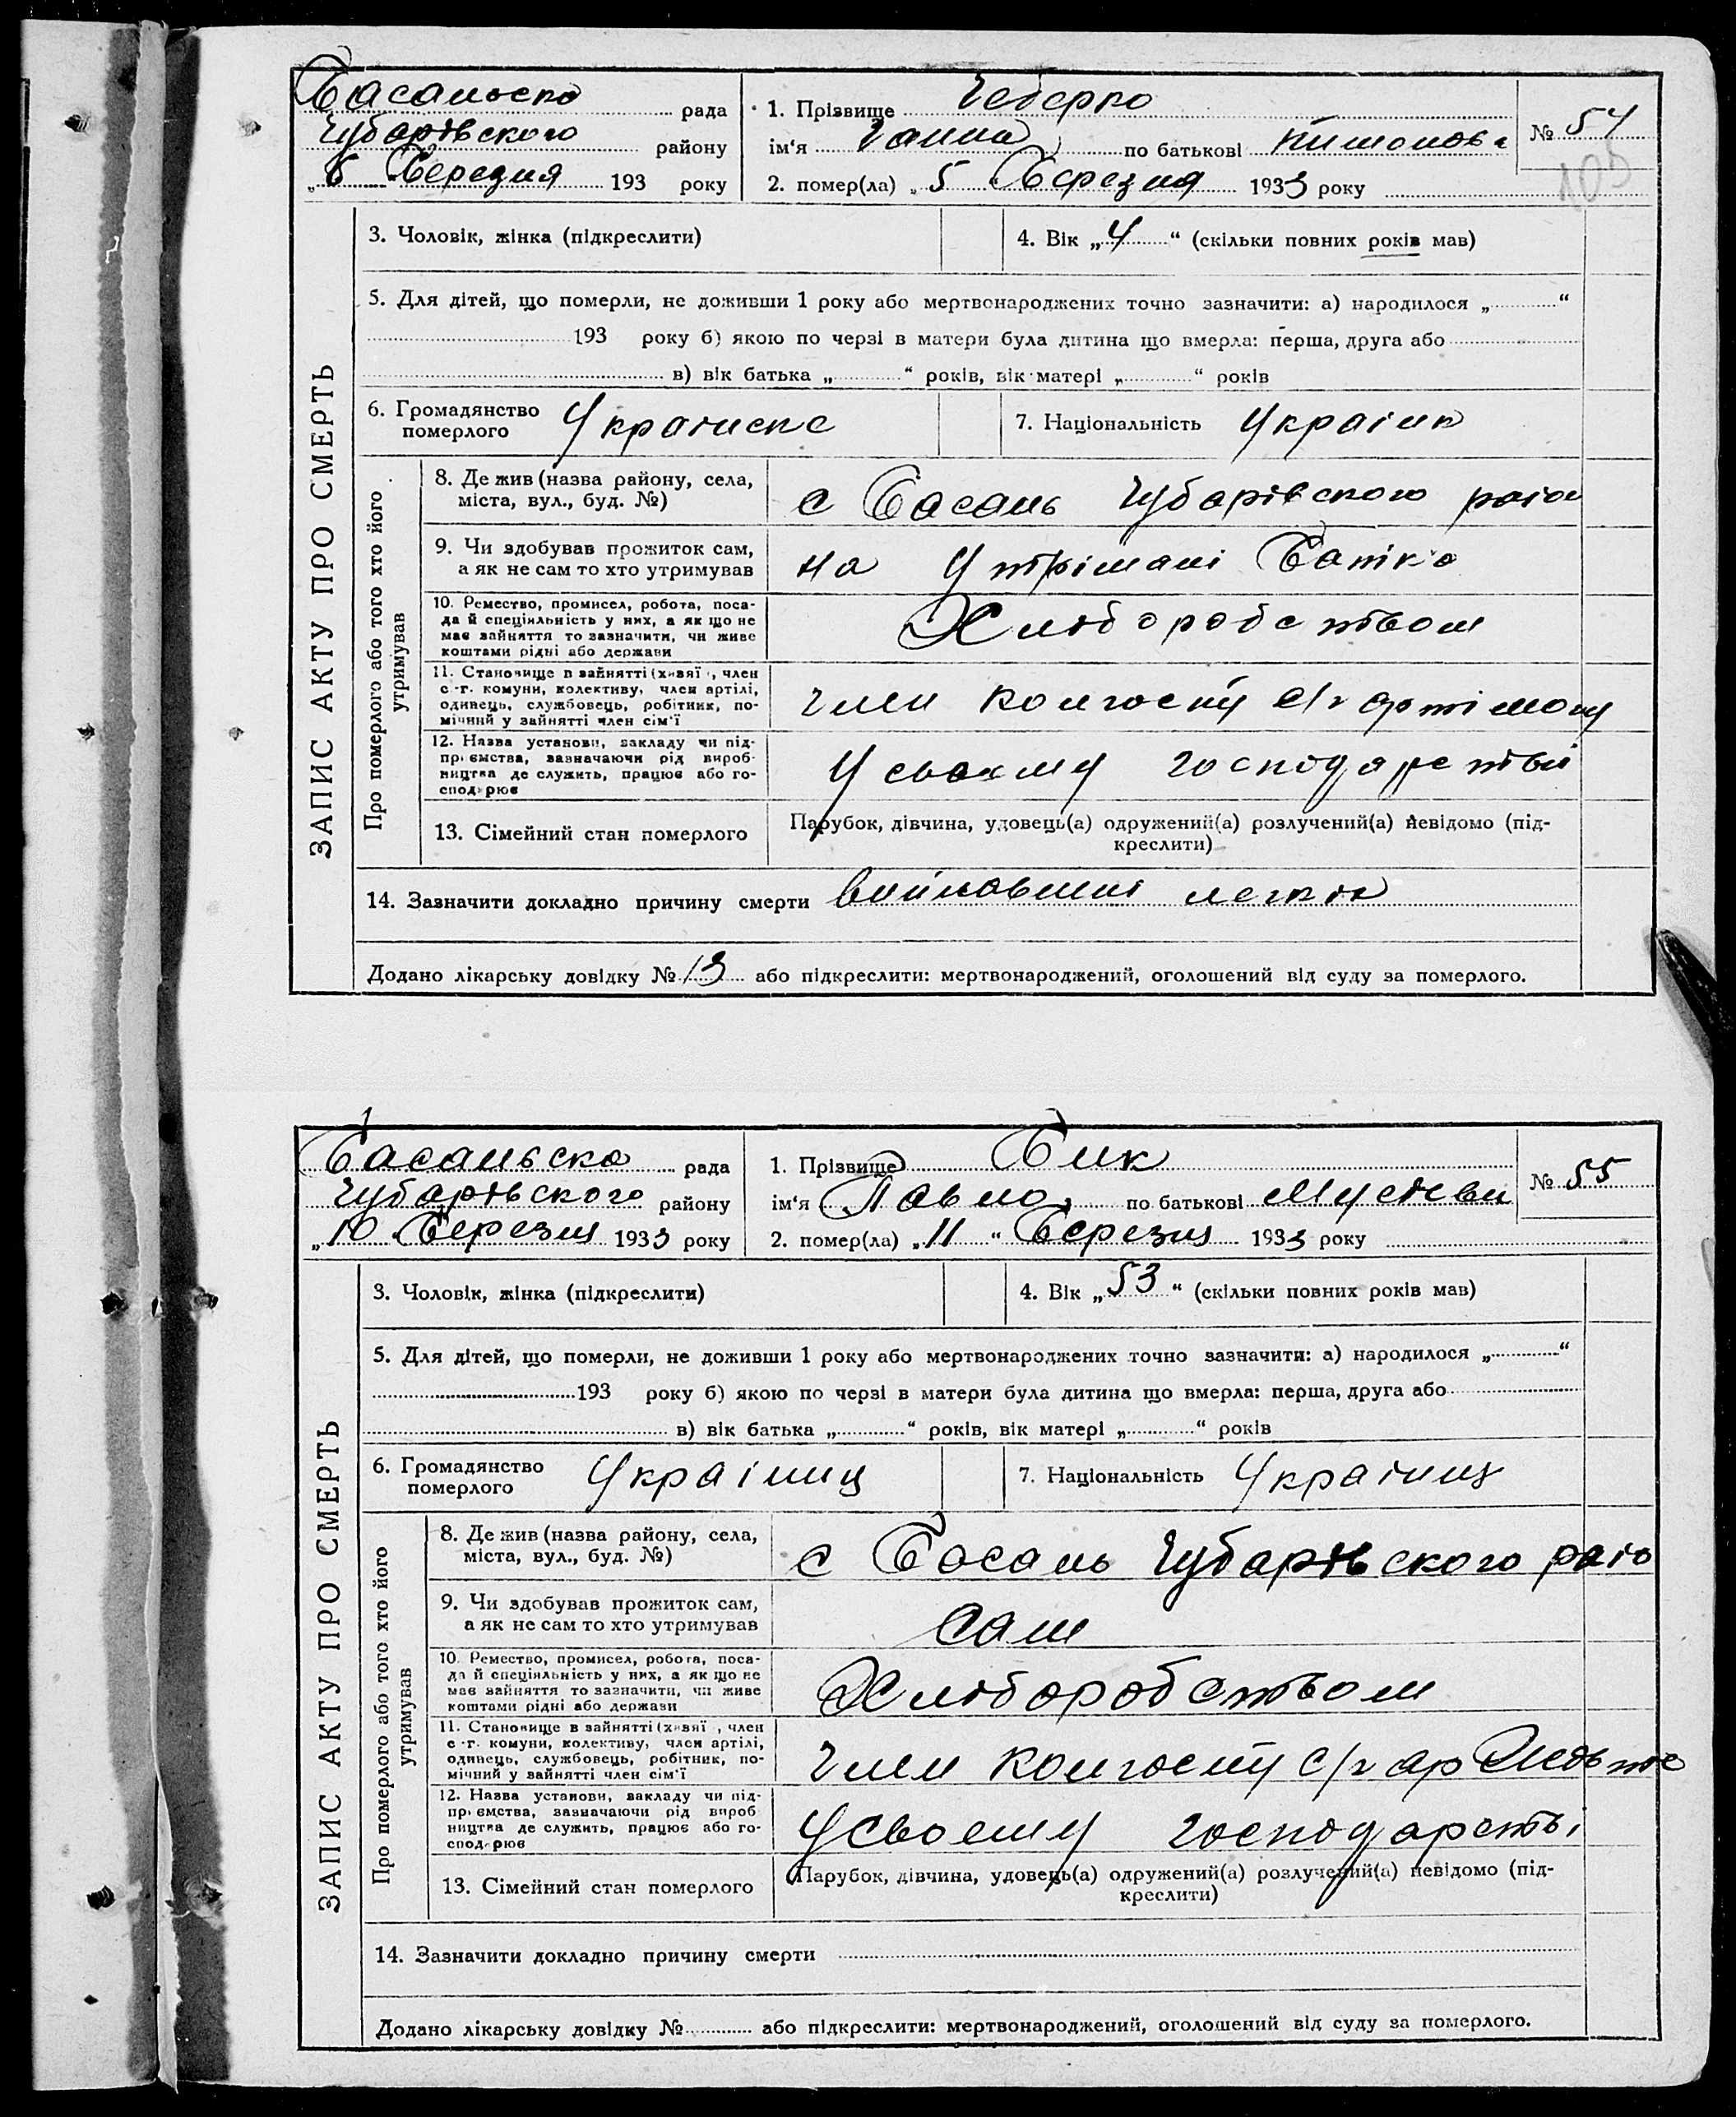 Басанська рада
Чубарівського району
„ 6 Березня 193 року
1. Прізвище Чеберко
ім'я Ганна по батькові
2. помер(ла) „ 5 “ Березня 1933 року
№ 54
105
ЗАПИС АКТУ ПРО СМЕРТЬ
3. Чоловік, жінка (підкреслити)
4. Вік „ 4 “ (скільки повних років мав)
5. Для дітей, що померли, не доживши 1 року або мертвонароджених точно зазначити: а) народилося „ “
193 року б) якою по черзі в матери була дитина що вмерла: перша, друга або
в) вік батька „ “ років, вік матері „ “ років
6. Громадянство
померлого
Украінске
7. Національність Украінк
Про померлого або того хто його
утримував
8. Де жив (назва району, села,
міста, вул., буд. №)
с Басань Чубарівского раіон
9. Чи здобував прожиток сам,
а як не сам то хто утримував
на Утрімані Батка
10. Ремество, промисел, робота, поса-
да й спеціяльність у них, а як що не
має зайняття то зазначити, чи живе
коштами рідні або держави
Хліборобством
11. Становище в зайнятті (хазяї , член
с.-г. комуни, колективу, член артілі,
одинець, службовець, робітник, по-
мічний у зайнятті член сім'ї
член колгоспу с/г
12. Назва установи, закладу чи під-
приємства, зазначаючи рід вироб-
ництва де служить, працює або го-
сподарює
У своему господарстві
13. Сімейний стан померлого
Парубок, дівчина, удовець(а) одружений(а) розлучений(а) невідомо (під-
креслити)
14. Зазначити докладно причину смерти легкіх
Додано лікарську довідку № 13 або підкреслити: мертвонароджений, оголошений від суду за померлого.
Басанська рада
Чубарівського району
„ 10 Березня 1933 року
1. Прізвище Бик
ім'я Павло по батькові
2. помер(ла) „ 11 “ Березня 1933 року
№ 55
ЗАПИС АКТУ ПРО СМЕРТЬ
3. Чоловік, жінка (підкреслити)
4. Вік „ 53 “ (скільки повних років мав)
5. Для дітей, що померли, не доживши 1 року або мертвонароджених точно зазначити: а) народилося „ “
193 року б) якою по черзі в матери була дитина що вмерла: перша, друга або
в) вік батька „ “ років, вік матері „ “ років
6. Громадянство
померлого
Украіниц
7. Національність Украіниц
Про померлого або того хто його
утримував
8. Де жив (назва району, села,
міста, вул., буд. №)
с Басань Чубарівского раіо
9. Чи здобував прожиток сам,
а як не сам то хто утримував
Сам
10. Ремество, промисел, робота, поса-
да й спеціяльність у них, а як що не
має зайняття то зазначити, чи живе
коштами рідні або держави
Хліборобством
11. Становище в зайнятті (хазяї , член
с.-г. комуни, колективу, член артілі,
одинець, службовець, робітник, по-
мічний у зайнятті член сім'ї
член колгоспу с/г ар
12. Назва установи, закладу чи під-
приємства, зазначаючи рід вироб-
ництва де служить, працює або го-
сподарює
У своему господарстві
13. Сімейний стан померлого
Парубок, дівчина, удовець(а) одружений(а) розлучений(а) невідомо (під-
креслити)
14. Зазначити докладно причину смерти
Додано лікарську довідку № або підкреслити: мертвонароджений, оголошений від суду за померлого.